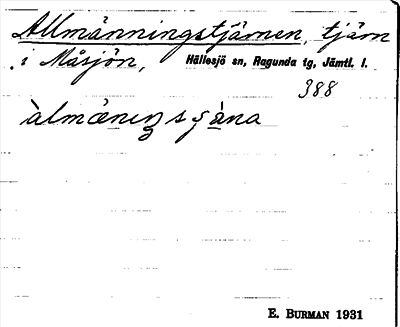 Allmänningstjärnen, tjärn
i Måsjön, Hällesjö sn, Ragunda tg, Jämtl. l.
388
E. BURMAN 1931